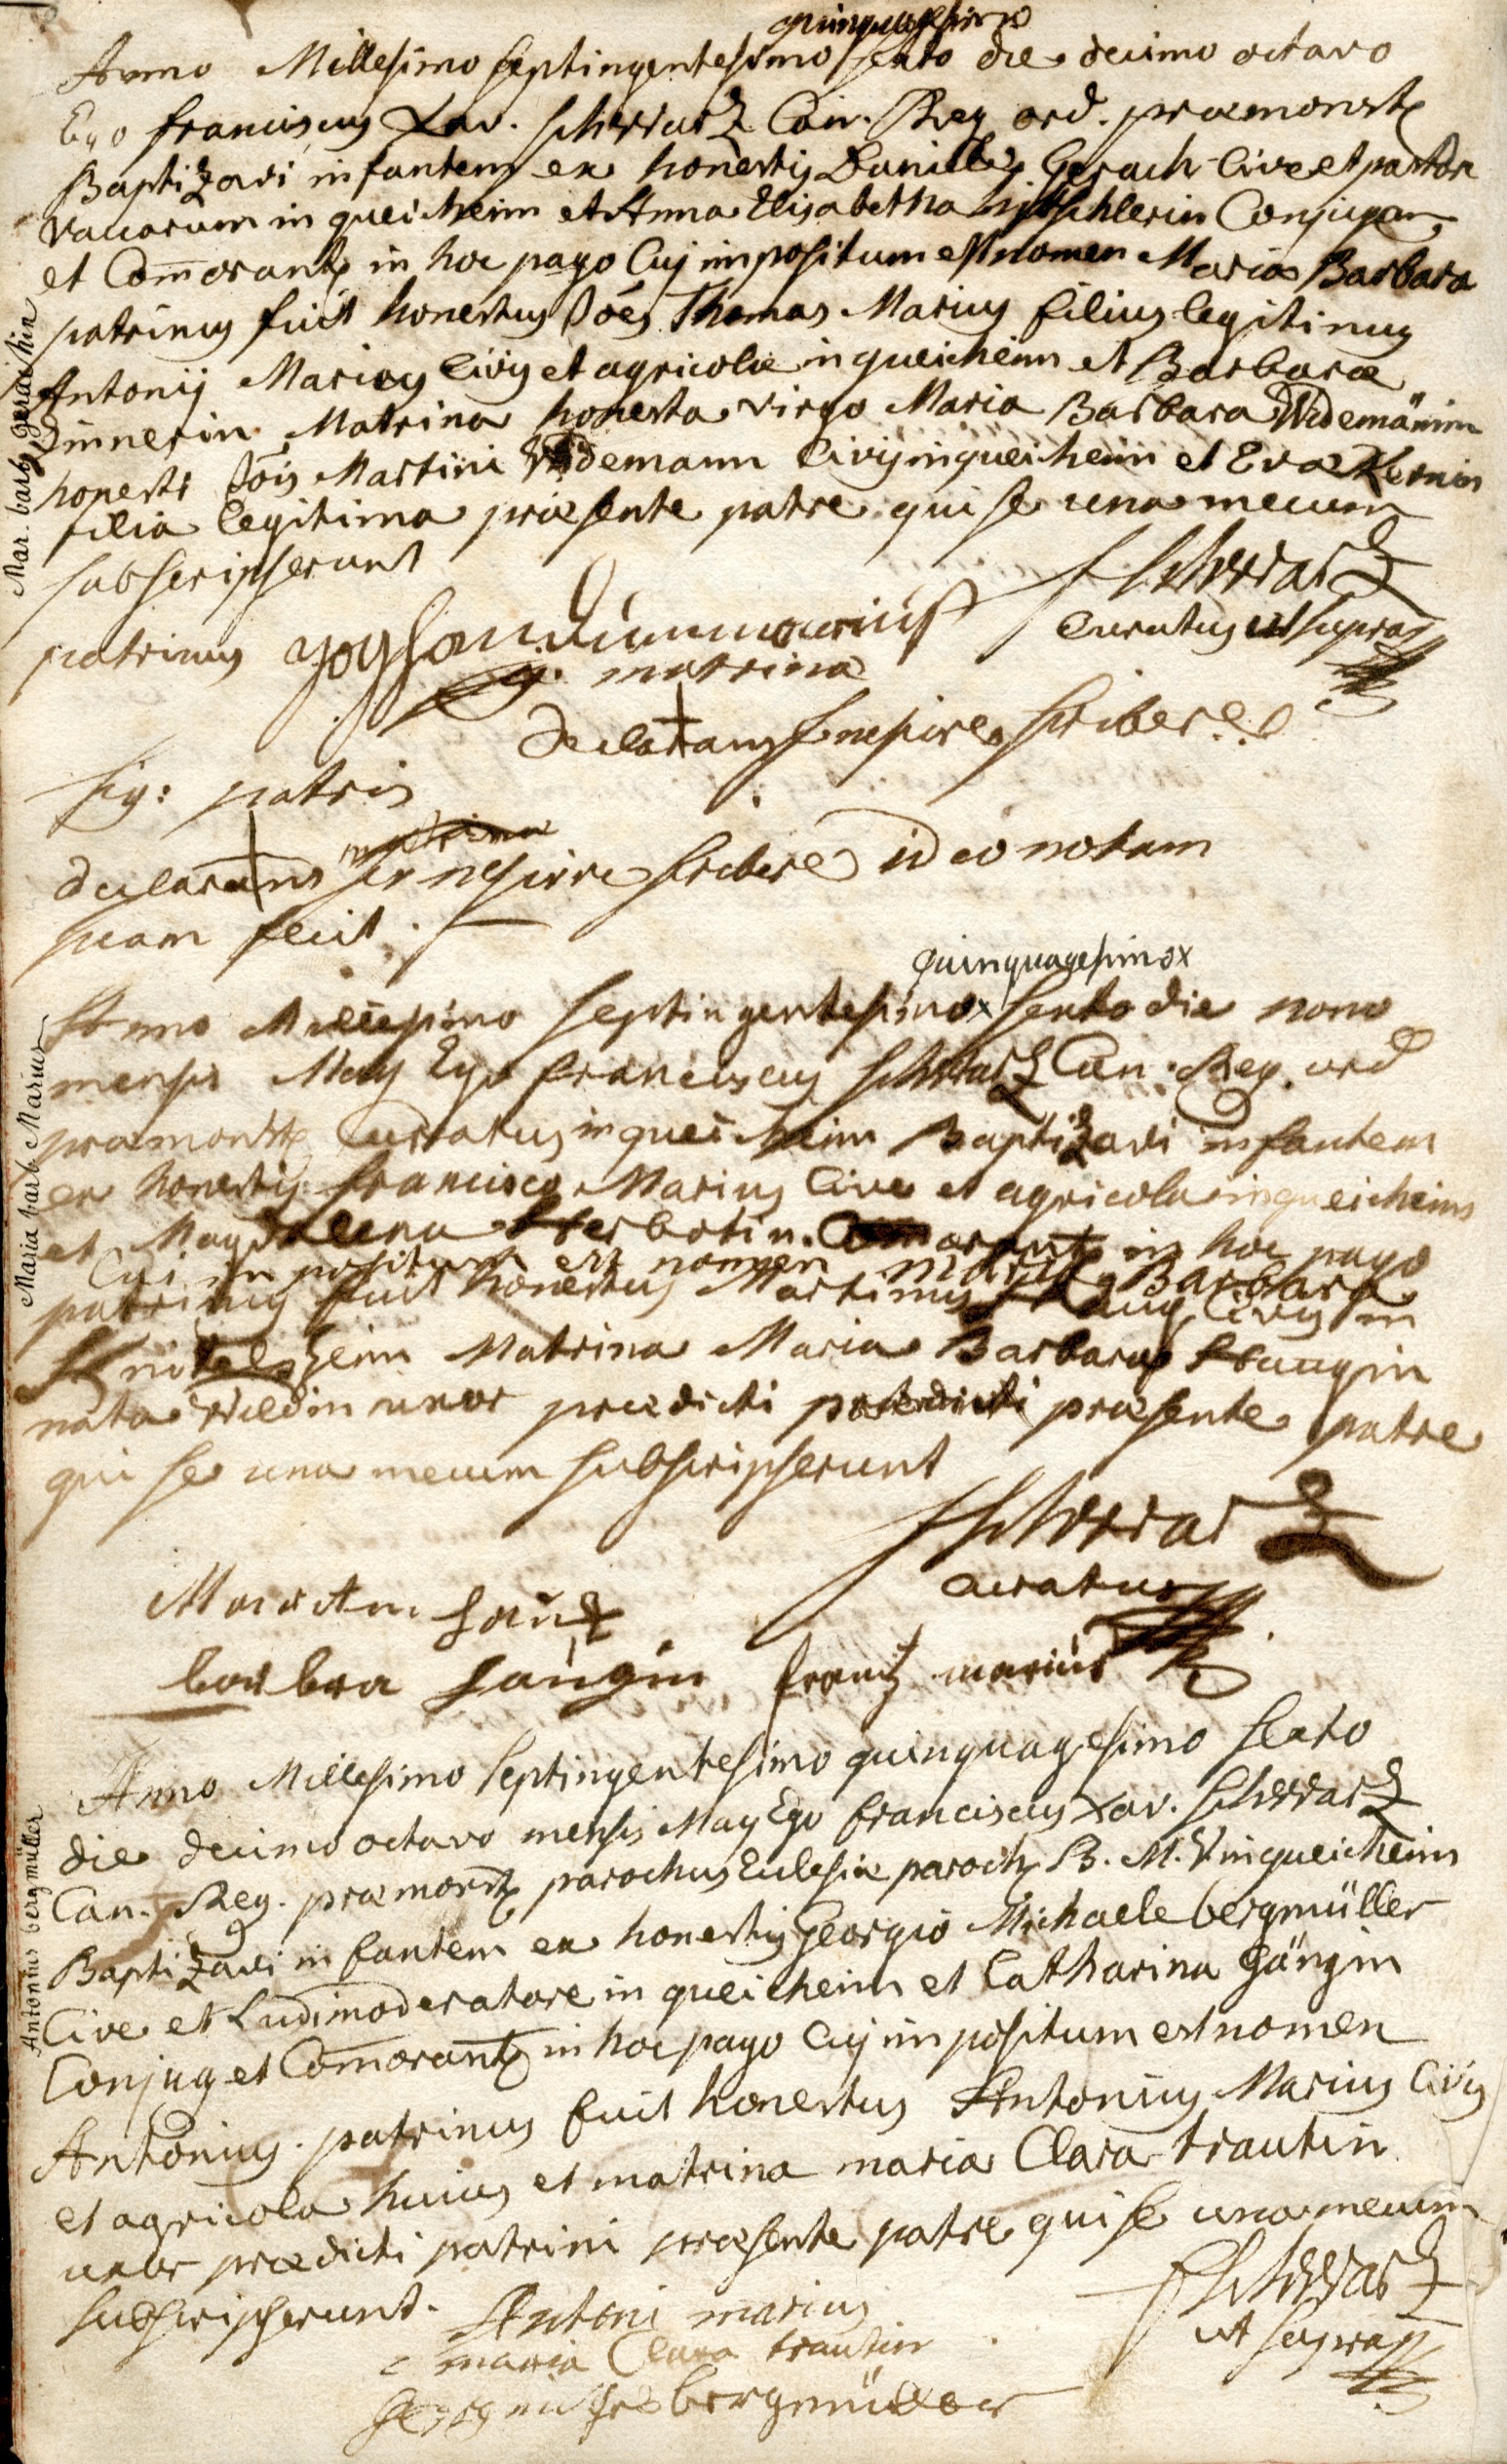 quinquagesimo
Anno Millesimo septingentesimo sexto die decimo octavo
Ego franciscus Xav. schwartz Can. Reg ord. præmonst
Baptizavi infantem ex honestis Daniele Gerach Cive et pastore
vaccarum in queicheim et Anna Elisabetha Conjugan
et Comorant in hoc pago Cuj impositum est nomen Maria Barbara
patrinus fuit honestus Joes Thomas Marius filius legitimus
Antonij Marius Civis et agricolæ in queicheim et Barbaræ
Zinnerin Matrina honesta virgo Maria Barbara Widemännin
honesti Jois Martini Widemann Civis in queicheim et Eva Kernin
filia legitima præsente patre qui se una mecum
subscripserunt
Mar. barb. gerachin
schwartz
patrinus
curatus ut supra
matrina
declarans se nescire scribere
sig: patris
matrina
declarans se nescire scribere ideo notam
suam fecit.
quinquagesimo x
Anno Millesimo septingentesimo x sexto die nono
mensis May Ego franciscus schwartz Can. Reg. ord
præmonst Curatus in queicheim Baptizavi infantem
ex honestis francisco Marius Cive et agricola in queicheim
et Magdalena Herbstin Comorant in hoc pago
Cui impositum est nomen Maria Barbara
patrinus fuit honestus Martinus Civis in
Knitelsheim Matrina Maria Barbara
nata Wildin uxor prædicti præsente patre
qui se una mecum subscripserunt
Maria barb. Marius
schwartz
curatus
barbra franz marius
Anno Millesimo septingentesimo quinquagesimo sexto
die decimo octavo mensis May Ego franciscus Xav. schwartz
Can. Reg. præmonst parochus Eclesiæ paroch B. M. V in queicheim
Baptizavi infantem ex honestis Georgio Michaele bergmüller
Cive et Ludimoderatore in queicheim et Catharina gängin
Conjug et Comorant in hoc pago Cuj impositum est nomen
Antonius. patrinus fuit honestus Antonius Marius Civis
et agricola huius et matrina maria Clara trautin
uxor prædicti patrini præsente patre qui se una mecum
subscripserunt.
Antonius bergmüller
schwartz
ut supra
Antoni marius
maria Clara trautin
bergmüller